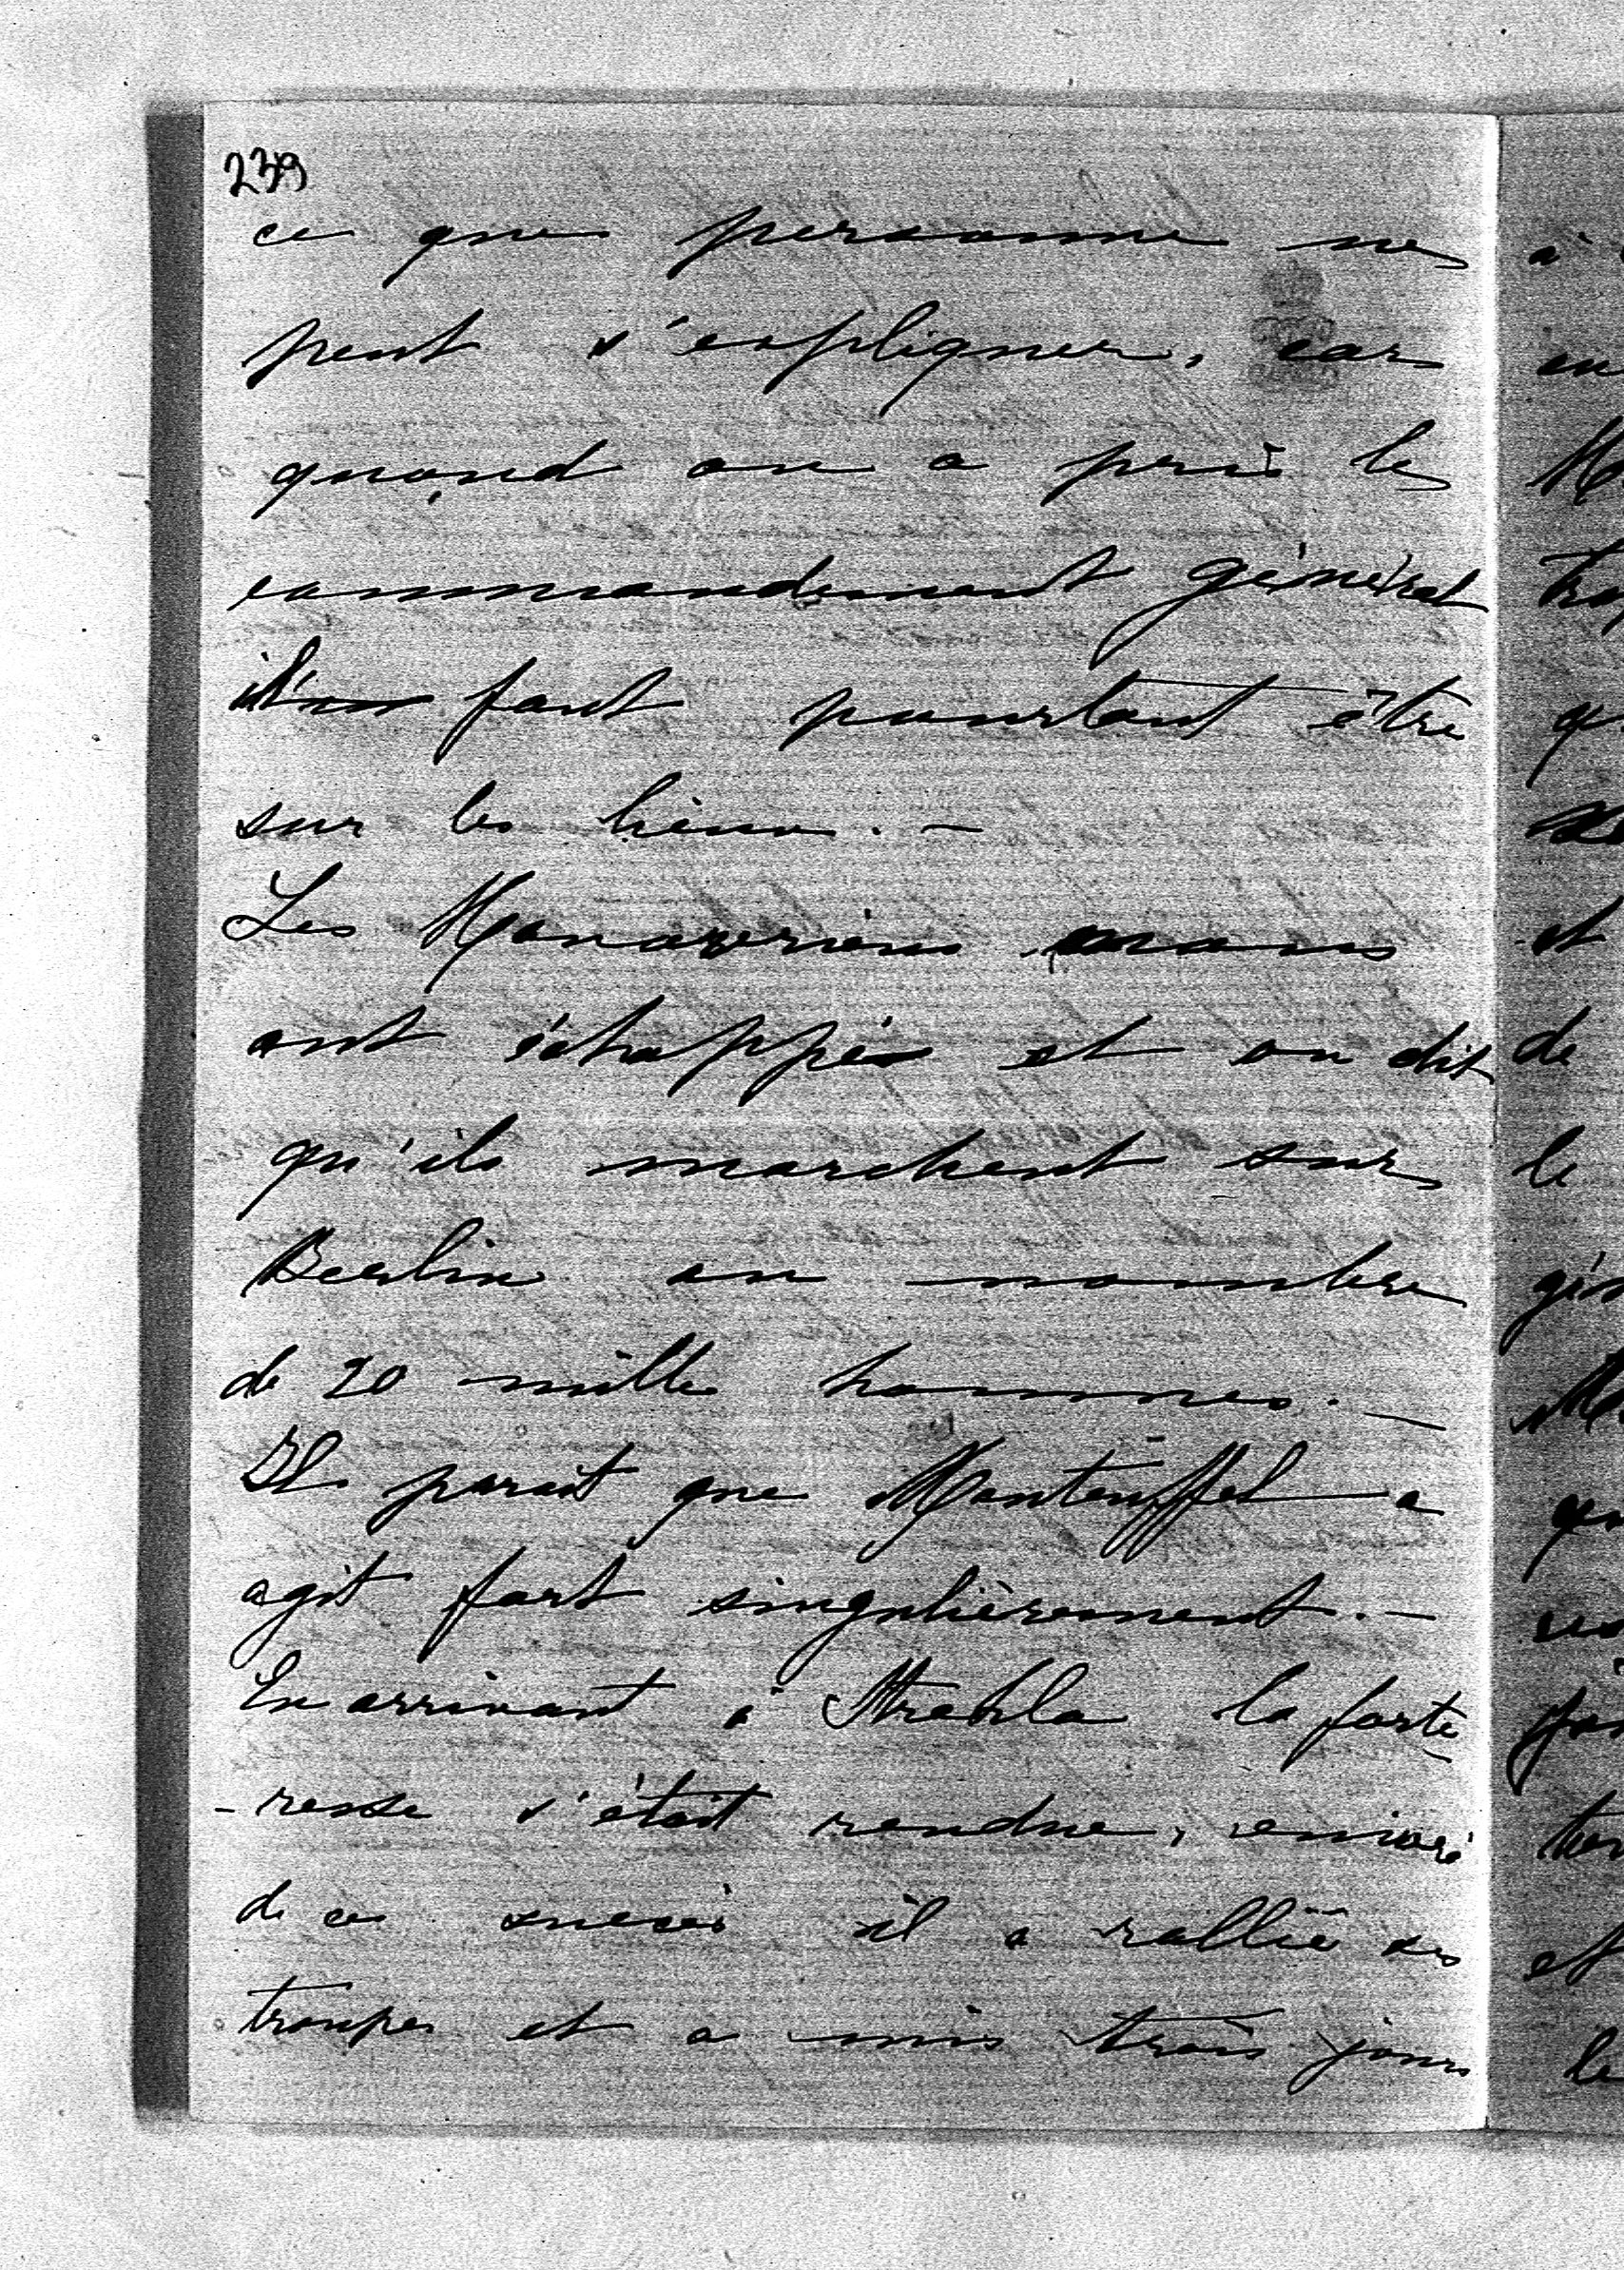 239
ce que personne ne
peut s'expliquer, car
quand on a pris le
commandement général
il faut pourtant être
sur les lieux. —
Les Hanovriens nous
ont échappés et on dit
qu'ils marchent sur
Berlin au nombre
de 20 mille hommes. —
Il parait que Manteuffel a
agit fort singulièrement. —
En arrivant à Strehla la forte
-resse s'était rendue, enivré
de ce succès il a rallié ses
troupes et a mis trois jours